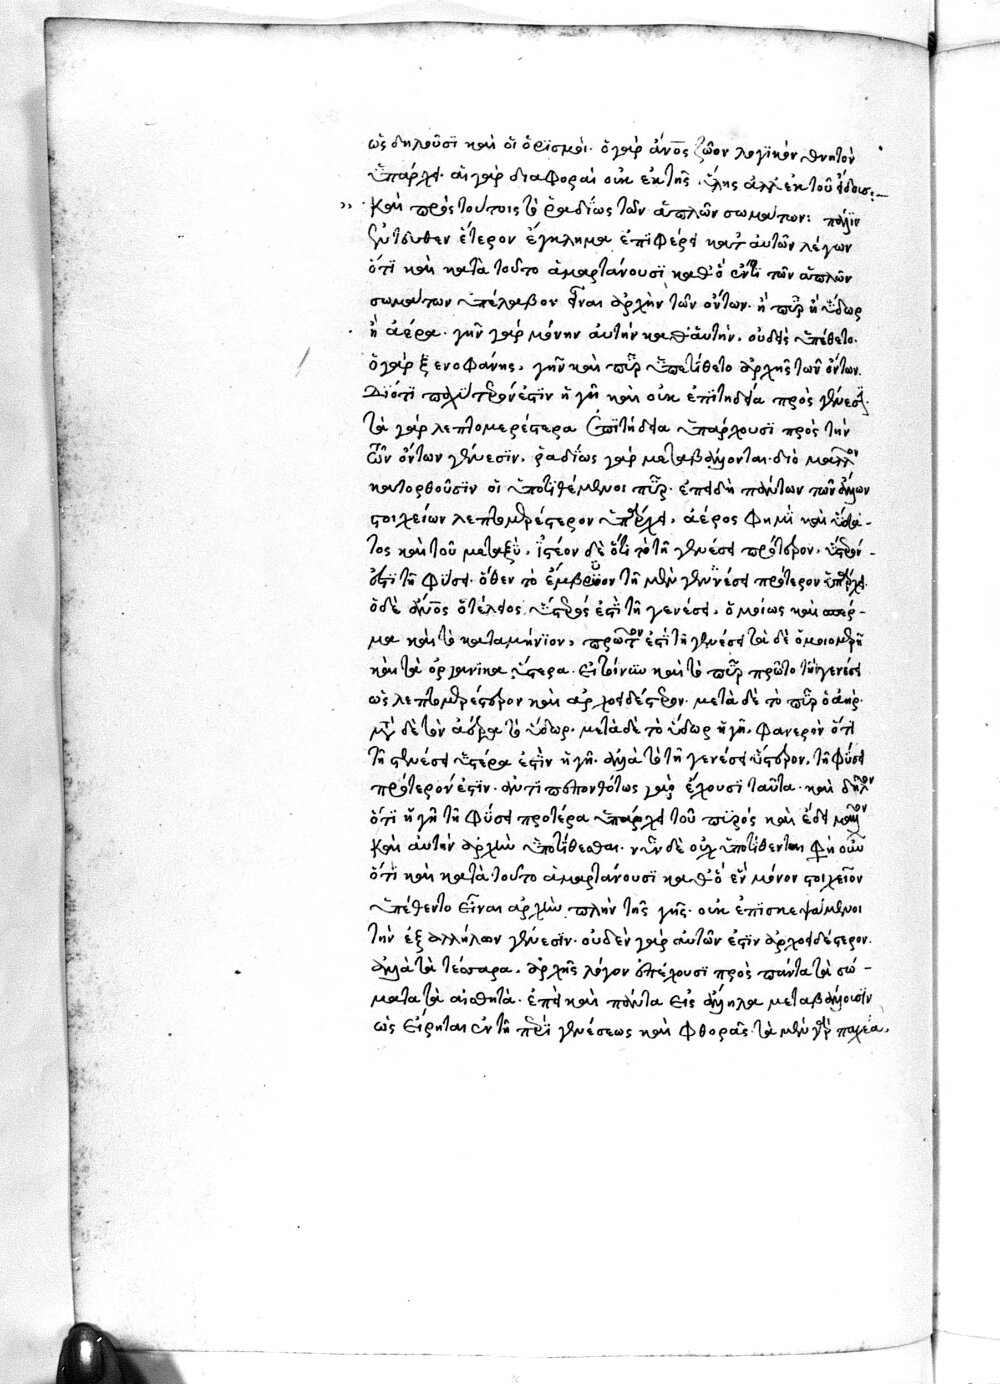 ὡς δηλοῦσι καὶ οἱ ὁρισμοί· ὁ γὰρ ἄνος ζῶον λογικὸν θνητὸν
ὑπάρχει· αἱ γὰρ διαφοραὶ οὐκ ἐκ τῆς ὕλης ἀλλ' ἐκ τοῦ εἴδους:–
καὶ πρὸς τούτοις τὸ ῥαδίως τῶν ἁπλῶν σωμάτων: πάλιν
ἐντεῦθεν ἕτερον ἔγκλημα ἐπιφέρει κατ' αὐτῶν λέγων
ὅτι καὶ κατὰ τοῦτο ἁμαρτάνουσι καθ' ὃ ἕν τι τῶν ἁπλῶν
σωμάτων ὑπέλαβον εἶναι ἀρχὴν τῶν ὄντων· ἢ πῦρ ἢ ὕδωρ
ἢ ἀέρα· γῆν γὰρ μόνην αὐτὴν καθ' αὑτὴν, οὐδεὶς ὑπέθετο·
ὁ γὰρ ξενοφάνης, γῆν καὶ πῦρ ὑπετίθετο ἀρχὰς τῶν ὄντων.
Διότι παχύτερόν ἐστιν ἡ γῆ καὶ οὐκ ἐπιτηδεία πρὸς γένεσιν·
τὰ γὰρ λεπτομερέστερα ἐπιτήδεια ὑπάρχουσι πρὸς τὴν
τῶν ὄντων γένεσιν, ῥαδίως γὰρ μεταβάλλονται· διὸ μᾶλλον
κατορθοῦσιν οἱ ὑποτιθέμενοι πῦρ· ἐπειδὴ πάντων τῶν ἄλλων
στοιχείων λεπτομερέστερον ὑπάρχει, ἀέρος φημὶ καὶ ὕδα–
τος καὶ τοῦ μεταξὺ, ἰστέον δὲ ὅτι τὸ τῇ γενέσει πρότερον, ὕστερόν–
ἐστι τῇ φύσει· ὅθεν τὸ ἔμβρυον τῇ μὲν γενέσει πρότερον ὑπάρχει
ὁ δὲ ἄνος ὁ τέλειος ὕστερός ἐστι τῇ γενέσει, ὁμοίως καὶ σπέρ–
μα καὶ τὸ καταμήνιον, πρῶτόν ἐστι τῇ γενέσει τὰ δὲ ὁμοιομερῆ
καὶ τὰ ὀργανικὰ ὕστερα· εἰ τοίνυν καὶ τὸ πῦρ πρῶτο τῇ γενέσει
ὡς λεπτομερέστερον καὶ ἀρχοειδέστερον· μετὰ δὲ τὸ πῦρ ὁ ἀήρ·
μετὰ δὲ τὸν ἀέρα τὸ ὕδωρ· μετὰ δὲ τὸ ὕδωρ ἡ γῆ, φανερὸν ὅτι
τῇ γενέσει ὑστέρα ἐστὶν ἡ γῆ· ἀλλὰ τὸ τῇ γενέσει ὕστερον, τῇ φύσει
πρότερόν ἐστιν· ἀντιπεπονθότως γὰρ ἔχουσι ταῦτα· καὶ δῆλον
ὅτι ἡ γῆ τῇ φύσει προτέρα ὑπάρχει τοῦ πυρὸς καὶ ἔδει μᾶλλον
καὶ αὐτὴν ἀρχὴν ὑποτίθεσθαι· νῦν δὲ οὐχ ὑποτίθενται φησὶν οὖν
ὅτι καὶ κατὰ τοῦτο ἁμαρτάνουσι καθ' ὃ ἓν μόνον στοιχεῖον
ὑπέθεντο εἶναι ἀρχὴν πλὴν τῆς γῆς· οὐκ ἐπισκεψάμενοι
τὴν ἐξ ἀλλήλων γένεσιν· οὐδὲν γὰρ αὐτῶν ἐστὶν ἀρχοειδέστερον·
ἀλλὰ τὰ τέσσαρα, ἀρχῆς λόγον ἐπέχουσι πρὸς πάντα τὰ σώ–
ματα τὰ αἰσθητά· ἐπεὶ καὶ πάντα εἰς ἄλληλα μεταβάλλουσιν
ὡς εἴρηται ἐν τῇ περὶ γενέσεως καὶ φθορᾶς· τὰ μὲν γὰρ παχέα,